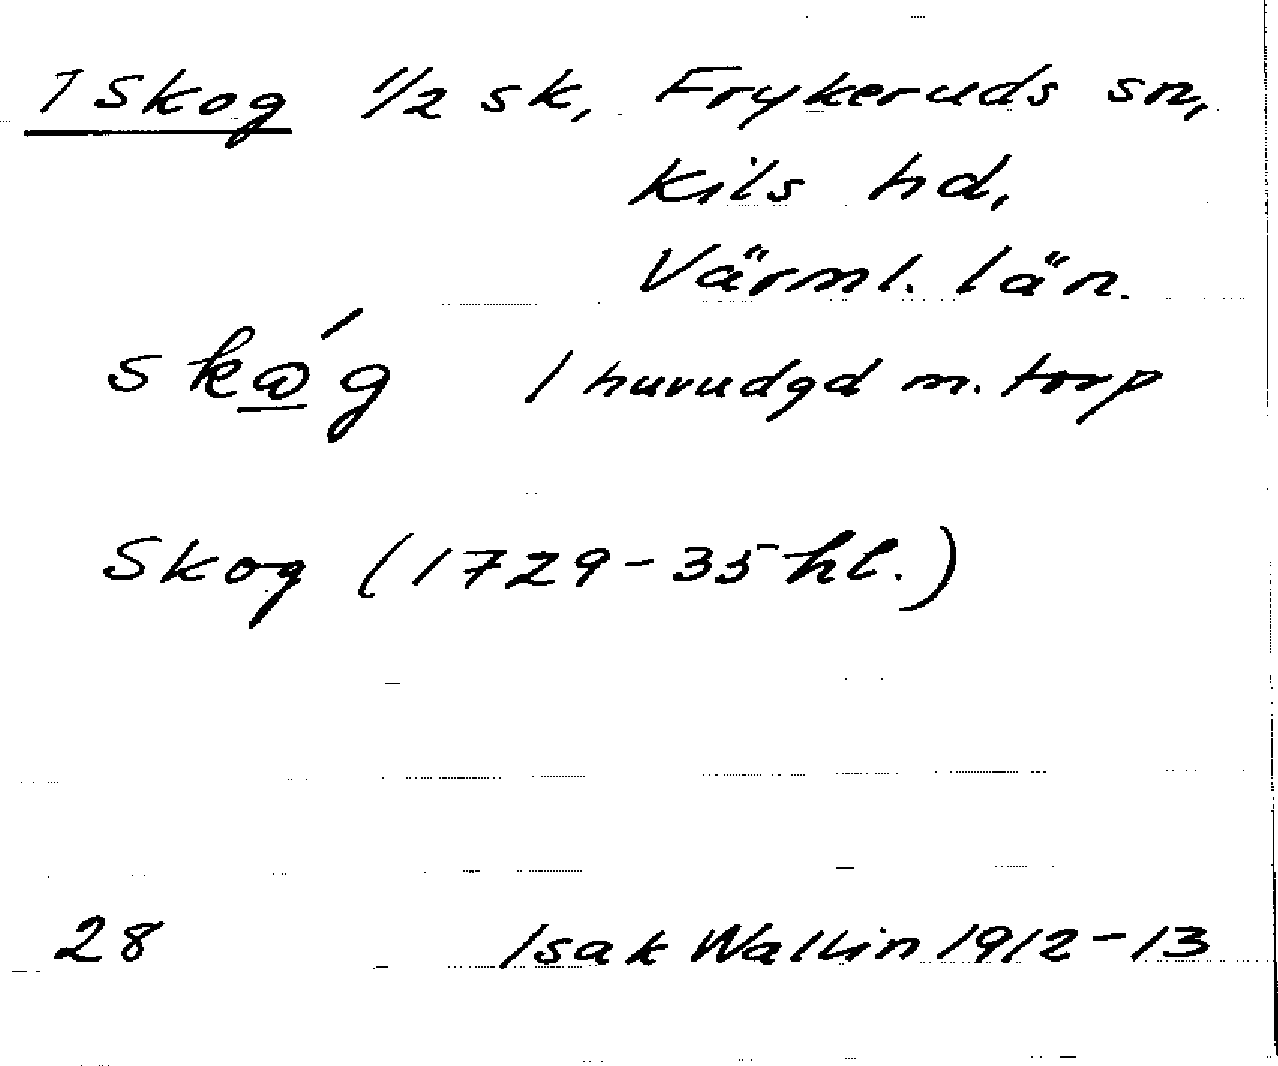 1 Skog 1/2 sk, Frykeruds sn,
Kils hd,
Värml. län.
skώg 1 huvudgd m. torp
Skog (1729-35 hl.)
28 Isak Wallin 1912-13